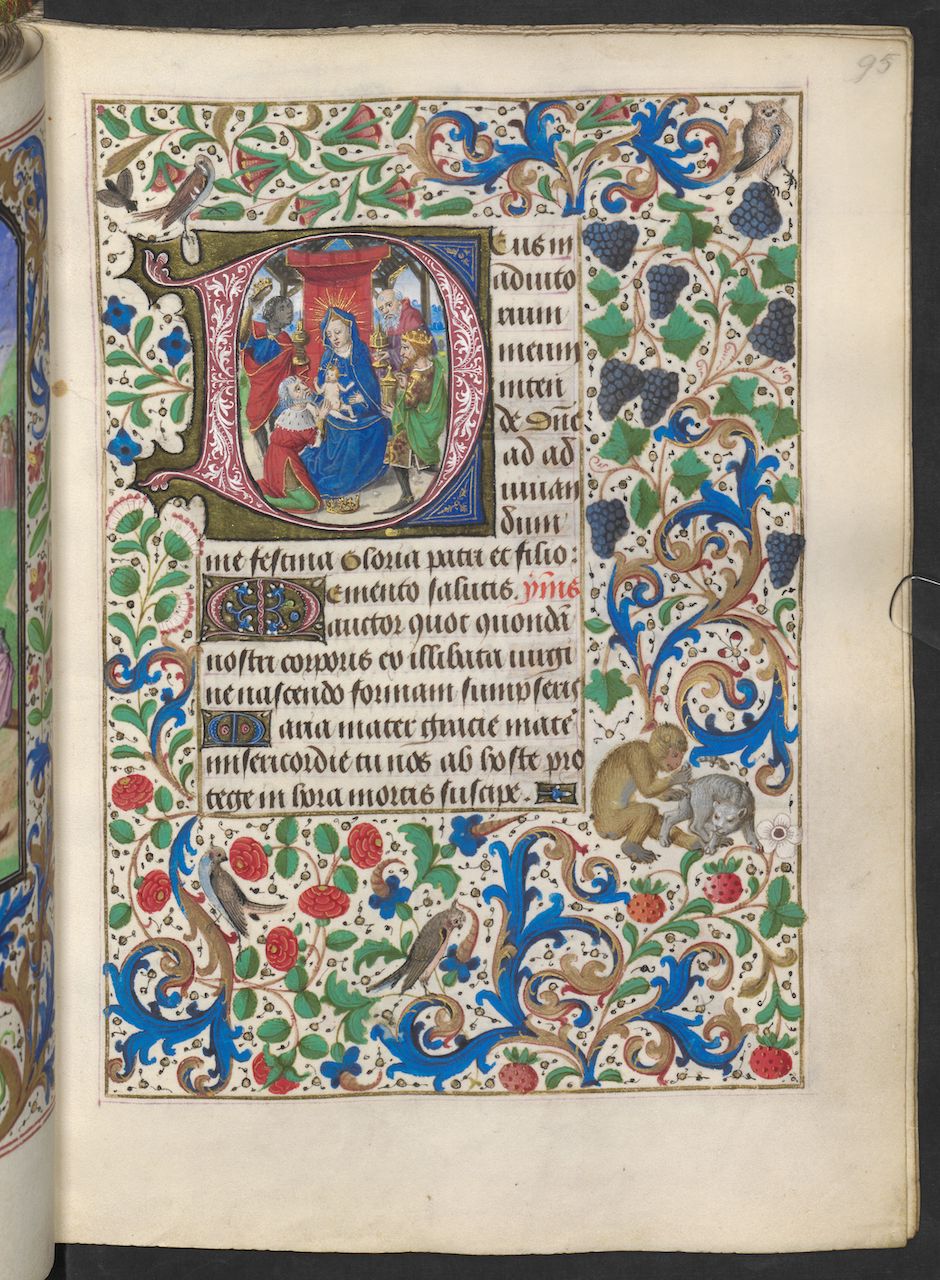 95
Deus in
adiuto
rium
meum
inten
de Dñe
ad ad
iuuan
dum
me festina Gloria patri et filio:
Memento salutis. yms
auctor quot quondã
nostri corporis ex illibata uirgi
ne nascendo formam sumpseris
Maria mater gracie mater
misericordie tu nos ab hoste pro
tege in hora mortis suscipe.